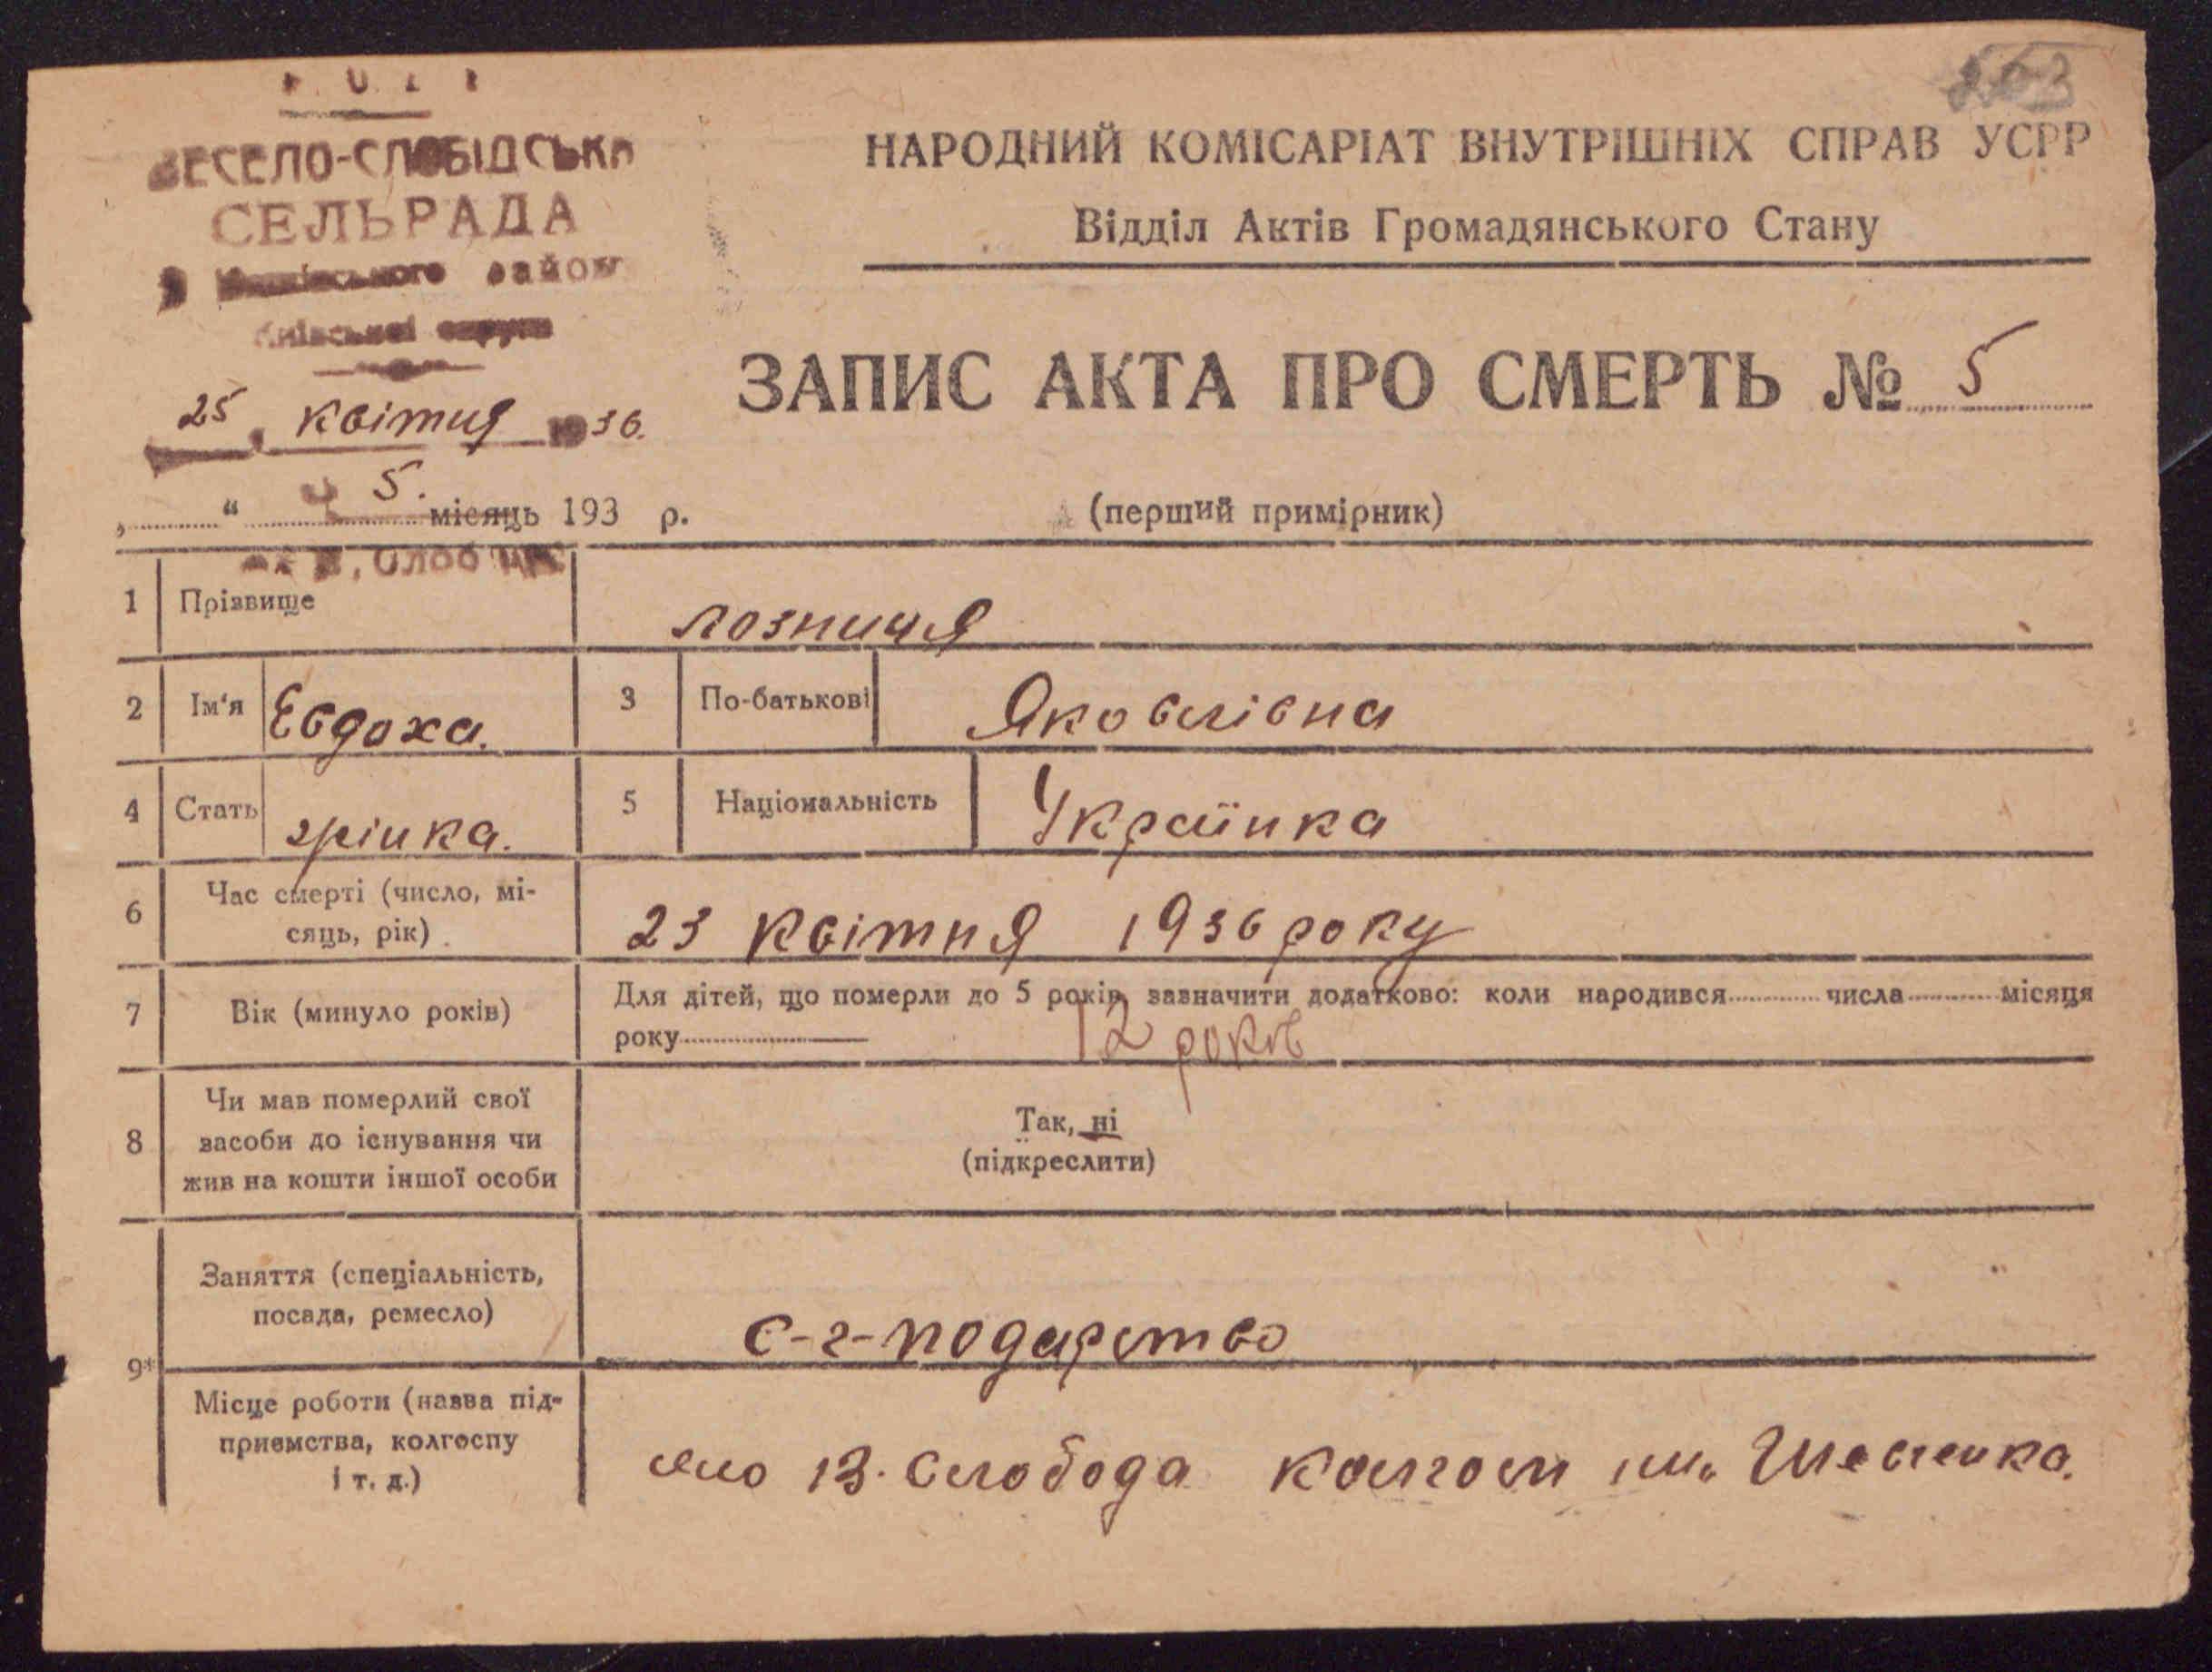 263
ВЕСЕЛО-СЛОБІДСЬКА
СЕЛЬРАДА
району
Київської округи
25 квітня 1936.
№ 5.
НАРОДНИЙ КОМІСАРІАТ ВНУТРІШНІХ СПРАВ УСРР
Відділ Актів Громадянського Стану
ЗАПИС АКТА ПРО СМЕРТЬ № 5
„ “ місяць 193 р.
(перший примірник)
1 Прізвище лозниця
2 Ім'я Євдоха. 3 По-батькові Яковлівна
4 Стать жінка. 5 Національність Українка
6 Час смерті (число, мі-
сяць, рік) 23 квітня 1936 року
7 Вік (минуло років) Для дітей, що померли до 5 років, зазначити додатково: коли народився числа місяця
року 12 років
8 Чи мав померлий свої
засоби до існування чи
жив на кошти іншої особи
Так, ні
(підкреслити)
9*
Заняття (спеціальність,
посада, ремесло)
с-г-подарство
Місце роботи (назва під-
приємства, колгоспу
і т. д.)
В. Слобода колгосп ім. Шевченка.